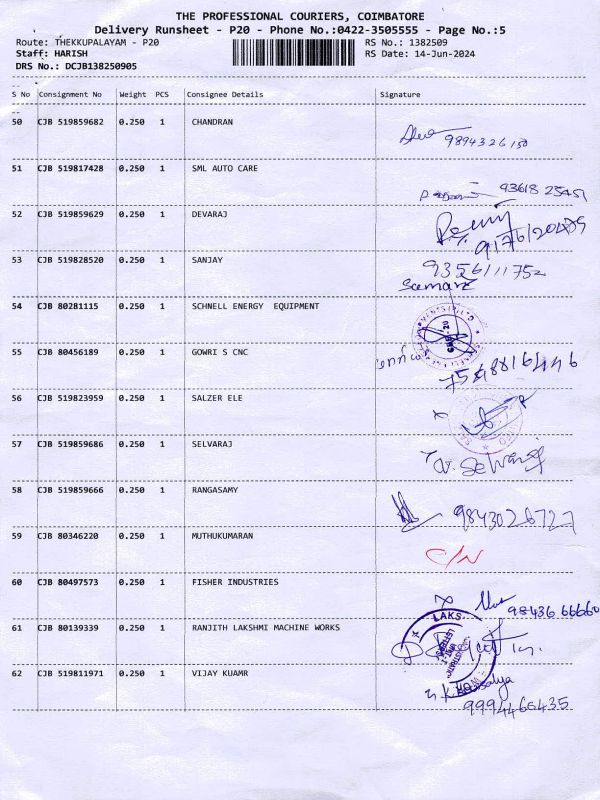 THE PROFESSIONAL COURIERS, COIMBATORE
Delivery Runsheet - P20 - Phone No.:0422-3505555 - Page No.:5
Route: THEKKUPALAYAM - P20 RS No.: 1382509
Staff: HARISH RS Date: 14-Jun-2024
DRS No.: DCJB138250905
S No Consignment No Weight PCS Consignee Details Signature
50 CJB 519859682 0.250 1 CHANDRAN
9894326150
51 CJB 519817428 0.250 1 SML AUTO CARE
93618 25451
52 CJB 519859629 0.250 1 DEVARAJ
53 CJB 519828520 0.250 1 SANJAY
9356111752
54 CJB 80281115 0.250 1 SCHNELL ENERGY EQUIPMENT
55 CJB 80456189 0.250 1 GOWRI S CNC
56 CJB 519823959 0.250 1 SALZER ELE
57 CJB 519859686 0.250 1 SELVARAJ
V. Selvaraj
58 CJB 519859666 0.250 1 RANGASAMY
59 CJB 80346220 0.250 1 MUTHUKUMARAN
C/N
60 CJB 80497573 0.250 1 FISHER INDUSTRIES
98436 66660
61 CJB 80139339 0.250 1 RANJITH LAKSHMI MACHINE WORKS
LAKS
62 CJB 519811971 0.250 1 VIJAY KUAMR
9994466435